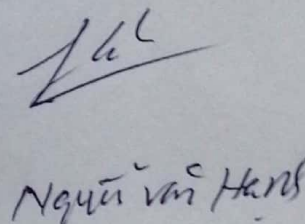 Nguyễn Văn Hạnh